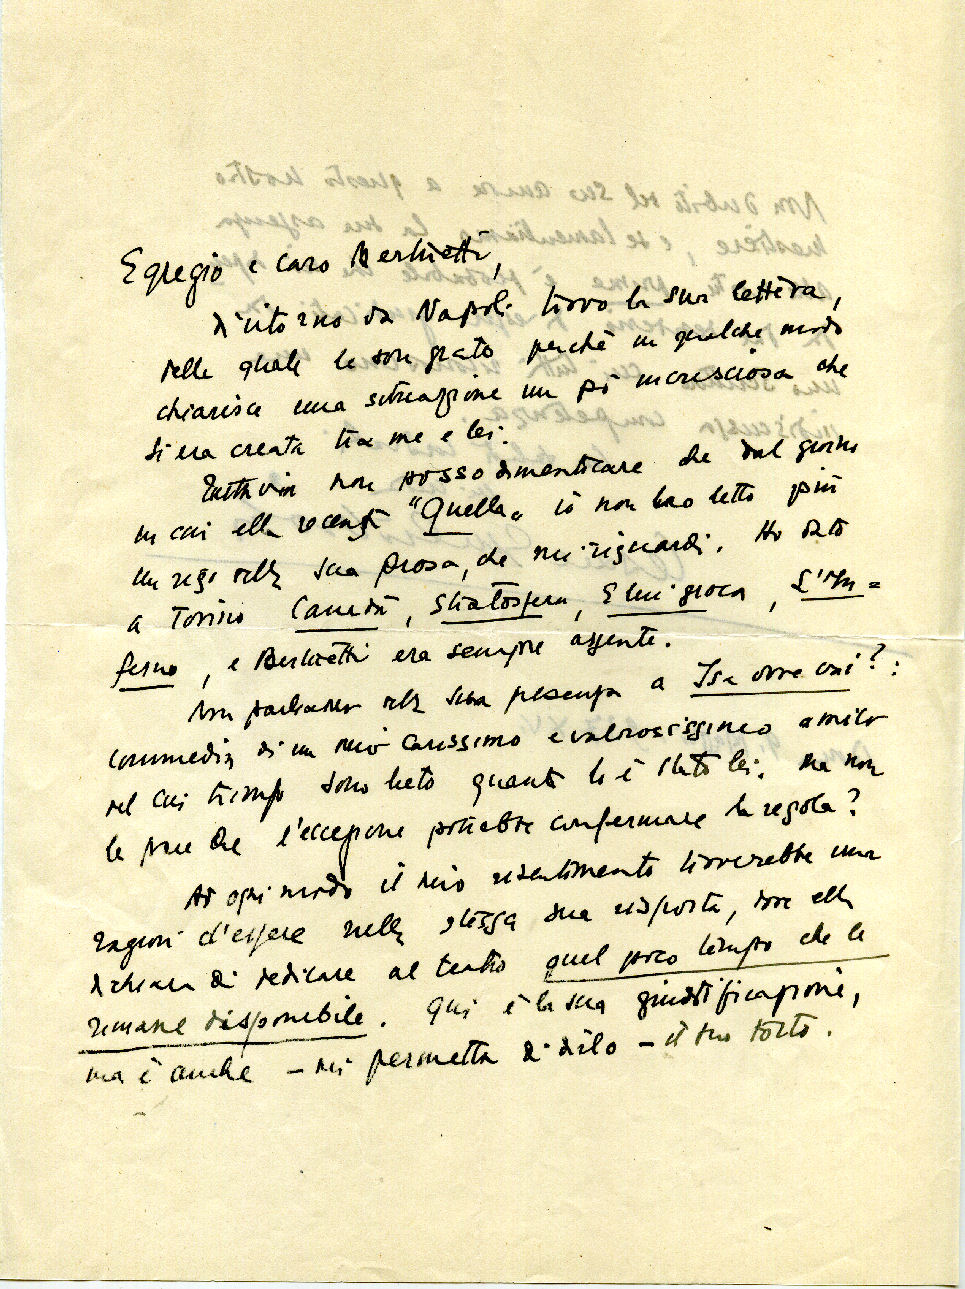 Egregio e caro Bertuetti,
di ritorno da Napoli trovo la sua lettera,
della quale le son grato perchè in qualche modo
chiarisce una situazione un pò incresciosa che
si era creata tra me e lei.
Tuttavia non posso dimenticare che dal giorno
in cui ella recensì "Quella„ io non ho letto più
un rigo della sua prosa, che mi riguardi. Ho dato
a Torino Canadà, Stratosfera, E lui gioca, L'In=
ferno, e Bertuetti era sempre assente.
Non parliamo della sua presenza a Isa dove vai?:
commedia di un mio carissimo e valorosissimo amico
del cui trionfo sono lieto quanto lo è stato lei. Ma non
le pare che l'eccezione potrebbe confermare la regola?
Ad ogni modo il mio risentimento troverebbe una
ragion d'essere nella stessa sua risposta, dove ella
dichiara di dedicare al teatro quel poco tempo che le
rimane disponibile. Qui è la sua giustificazione,
ma è anche – mi permetta di dirlo – il suo torto.